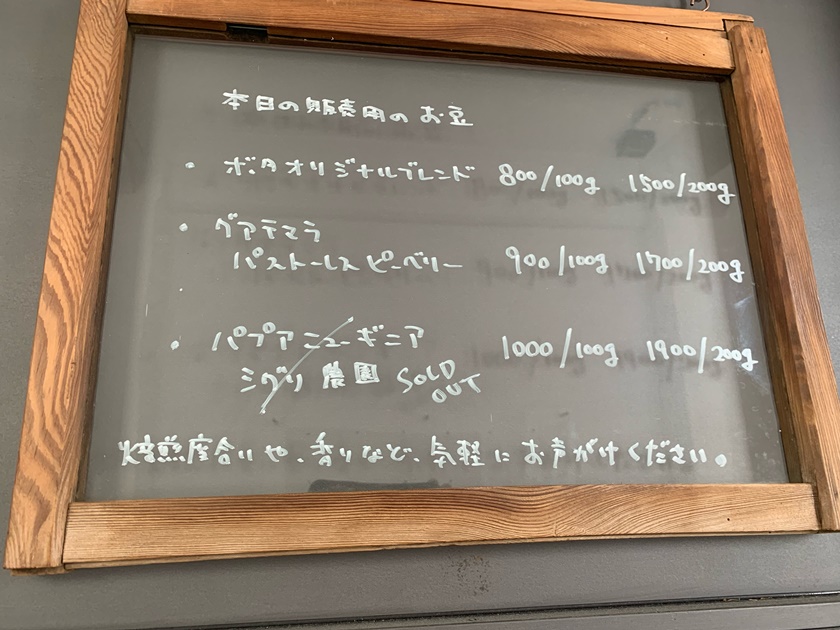 本日の販売用のお豆
・ボタオリジナルブレンド 800/100g 1500/200g
・グアテマラ
パストーレスピーベリー 900/100g 1700/200g
・パプアニューギニア 1000/100g 1900/200g
シグリ農園 SOLD OUT
焙煎度合いや、香りなど、気軽にお声がけください。